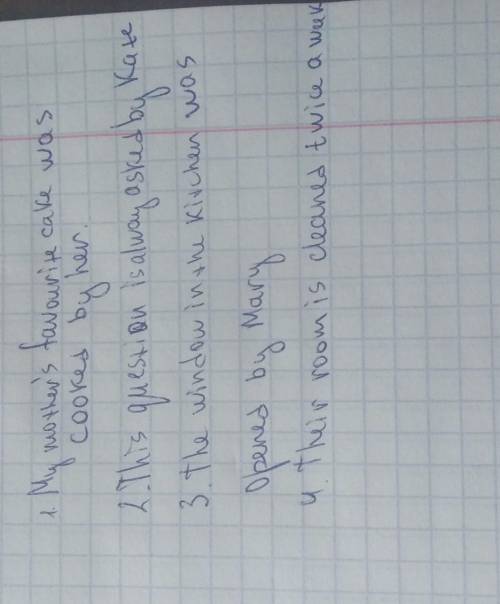 1. My mother's favourite cake was
cooked by her.
2. This question is alway asked by Kate
3. The window in the kitchen was
opened by Mary
4. Their room is cleaned twice a week